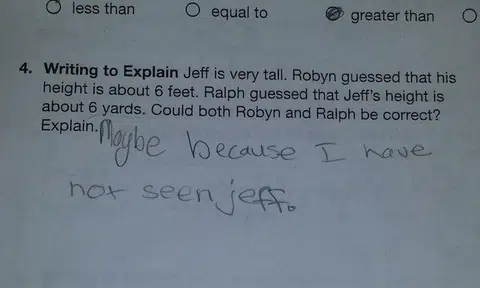 less than equal to greater than
4. Writing to Explain Jeff is very tall. Robyn guessed that his
height is about 6 feet. Ralph guessed that Jeff's height is
about 6 yards. Could both Robyn and Ralph be correct?
Explain. Maybe because I have
not seen jeff.